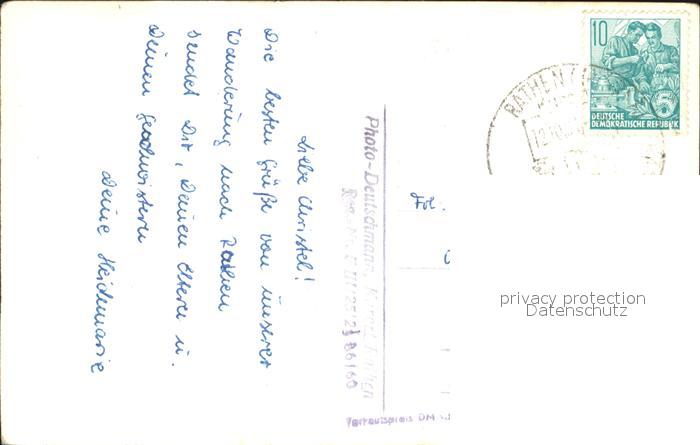 Liebe Christel!
Die besten Grüße von unserer
Wanderung nach Rathen
sendet Dir, Deinen Eltern u.
Deinen Geschwistern
Deine Heidemarie
Photo-Deutschmann, Kurort Rathen
86160
Verkaufspreis DM
Frl.
RATHEN
10
DEUTSCHE
DEMOKRATISCHE REPUBLIK
privacy protection
Datenschutz